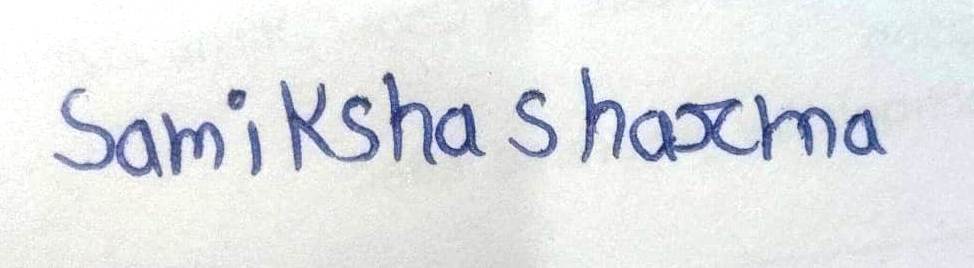 Samiksha sharma